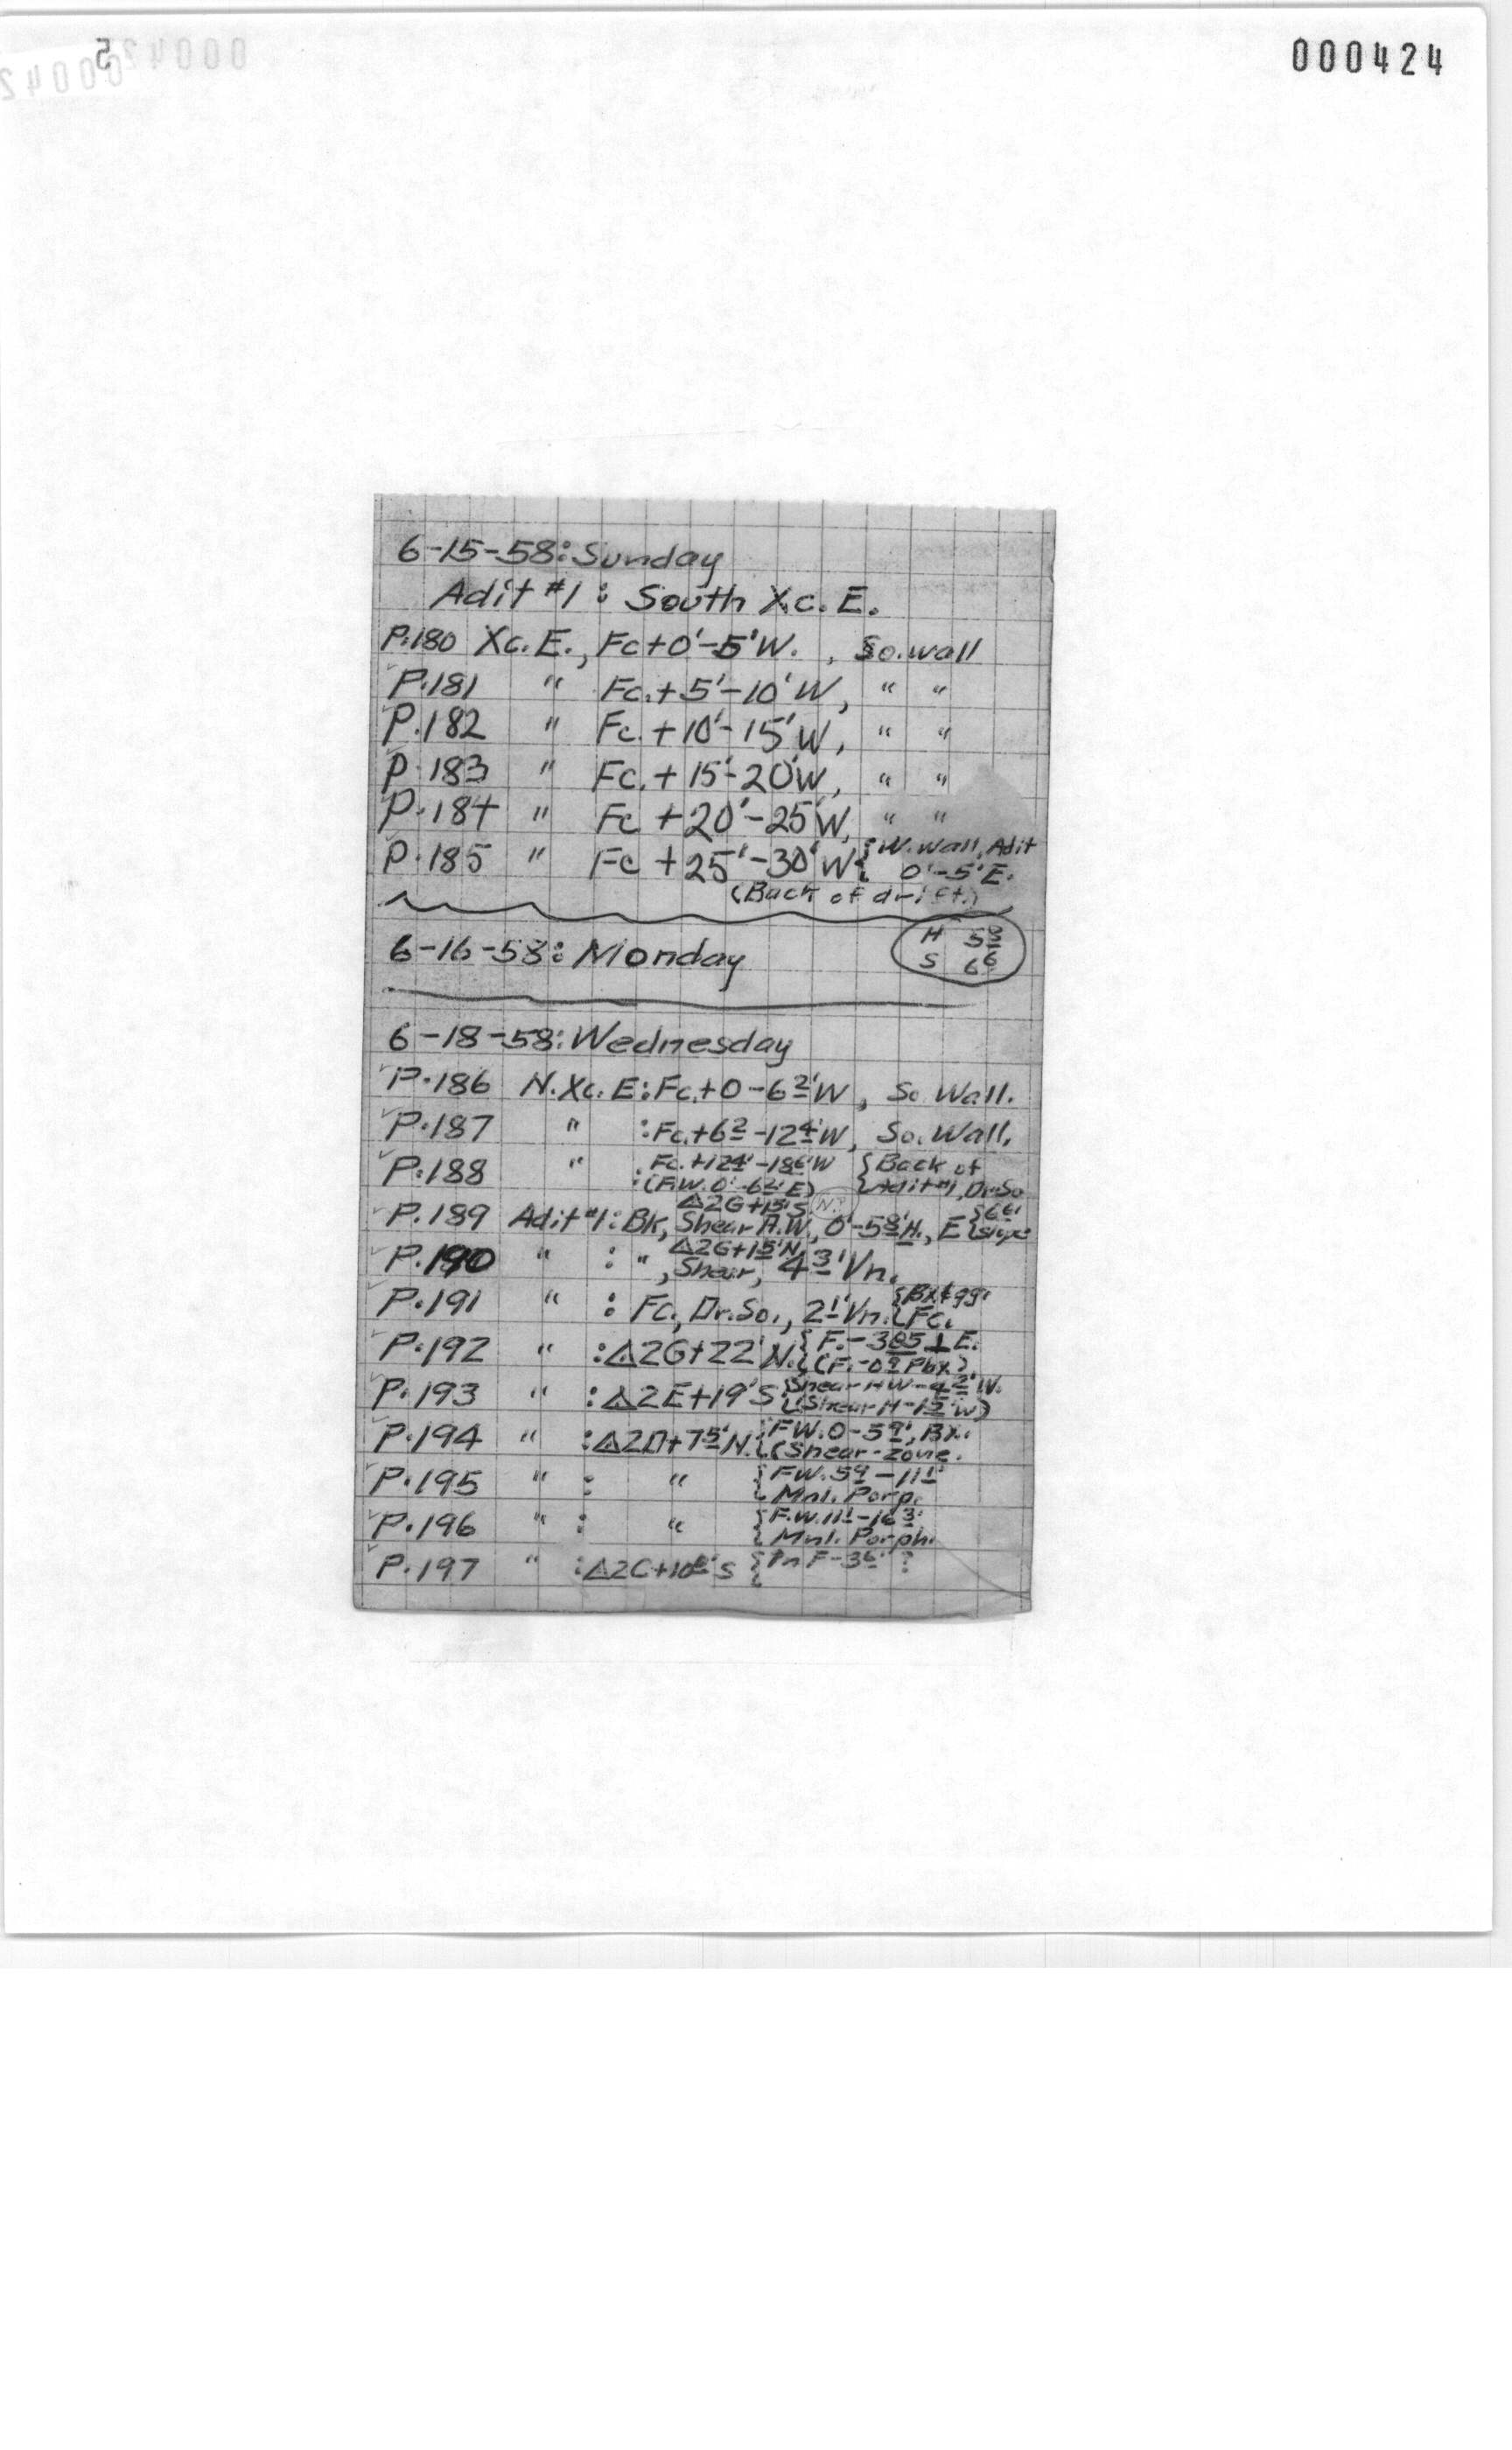 000424
6-15-58: Sunday
Adit #1: South Xc. E.
P.180 Xc. E., Fc+0'-5'W., So. wall
P.181 " Fc.+5'-10'W, " "
P.182 " Fc.+10'-15'W, " "
P.183 " Fc.+15'-20'W, " "
P.184 " Fc+20'-25'W, " "
P.185 " Fc+25'-30'W { W. Wall, Adit
0'-5'E.
(Back of drift)
6-16-58: Monday
H
S 66
6-18-58: Wednesday
P.186 N. Xc. E: Fc.+0-62'W, So. Wall.
P.187 " : Fc.+62-124'W, So. Wall.
P.188 " : Fc.+124'-186'W { Back of
(F.W. 0'-62'E) Adit #1, Dr. So
Δ2G+15'S N?
P.189 Adit #1: Bk, Shear H.W., 0'-58'H., E { 66'
slope
Δ2G+15'N,
P.190 " : ", Shear, 43' Vn.
P.191 " : Fc., Dr. So., 21' Vn. {
Fc.
P.192 " : Δ2G+22'N. { F.-305⊥E.
(F.-09 Pbx)
P.193 " : Δ2E+19'S { Shear HW-42'W.
(Shear H-15'W)
P.194 " : Δ2D+75'N. { FW. 0-59', Bx.
(Shear-zone.
P.195 " : " { FW. 59-111'
Mnl. Porp.
P.196 " : " { F.W. 111-163'
Mnl. Porph.
P.197 " : Δ2C+108'S { In F-36'?